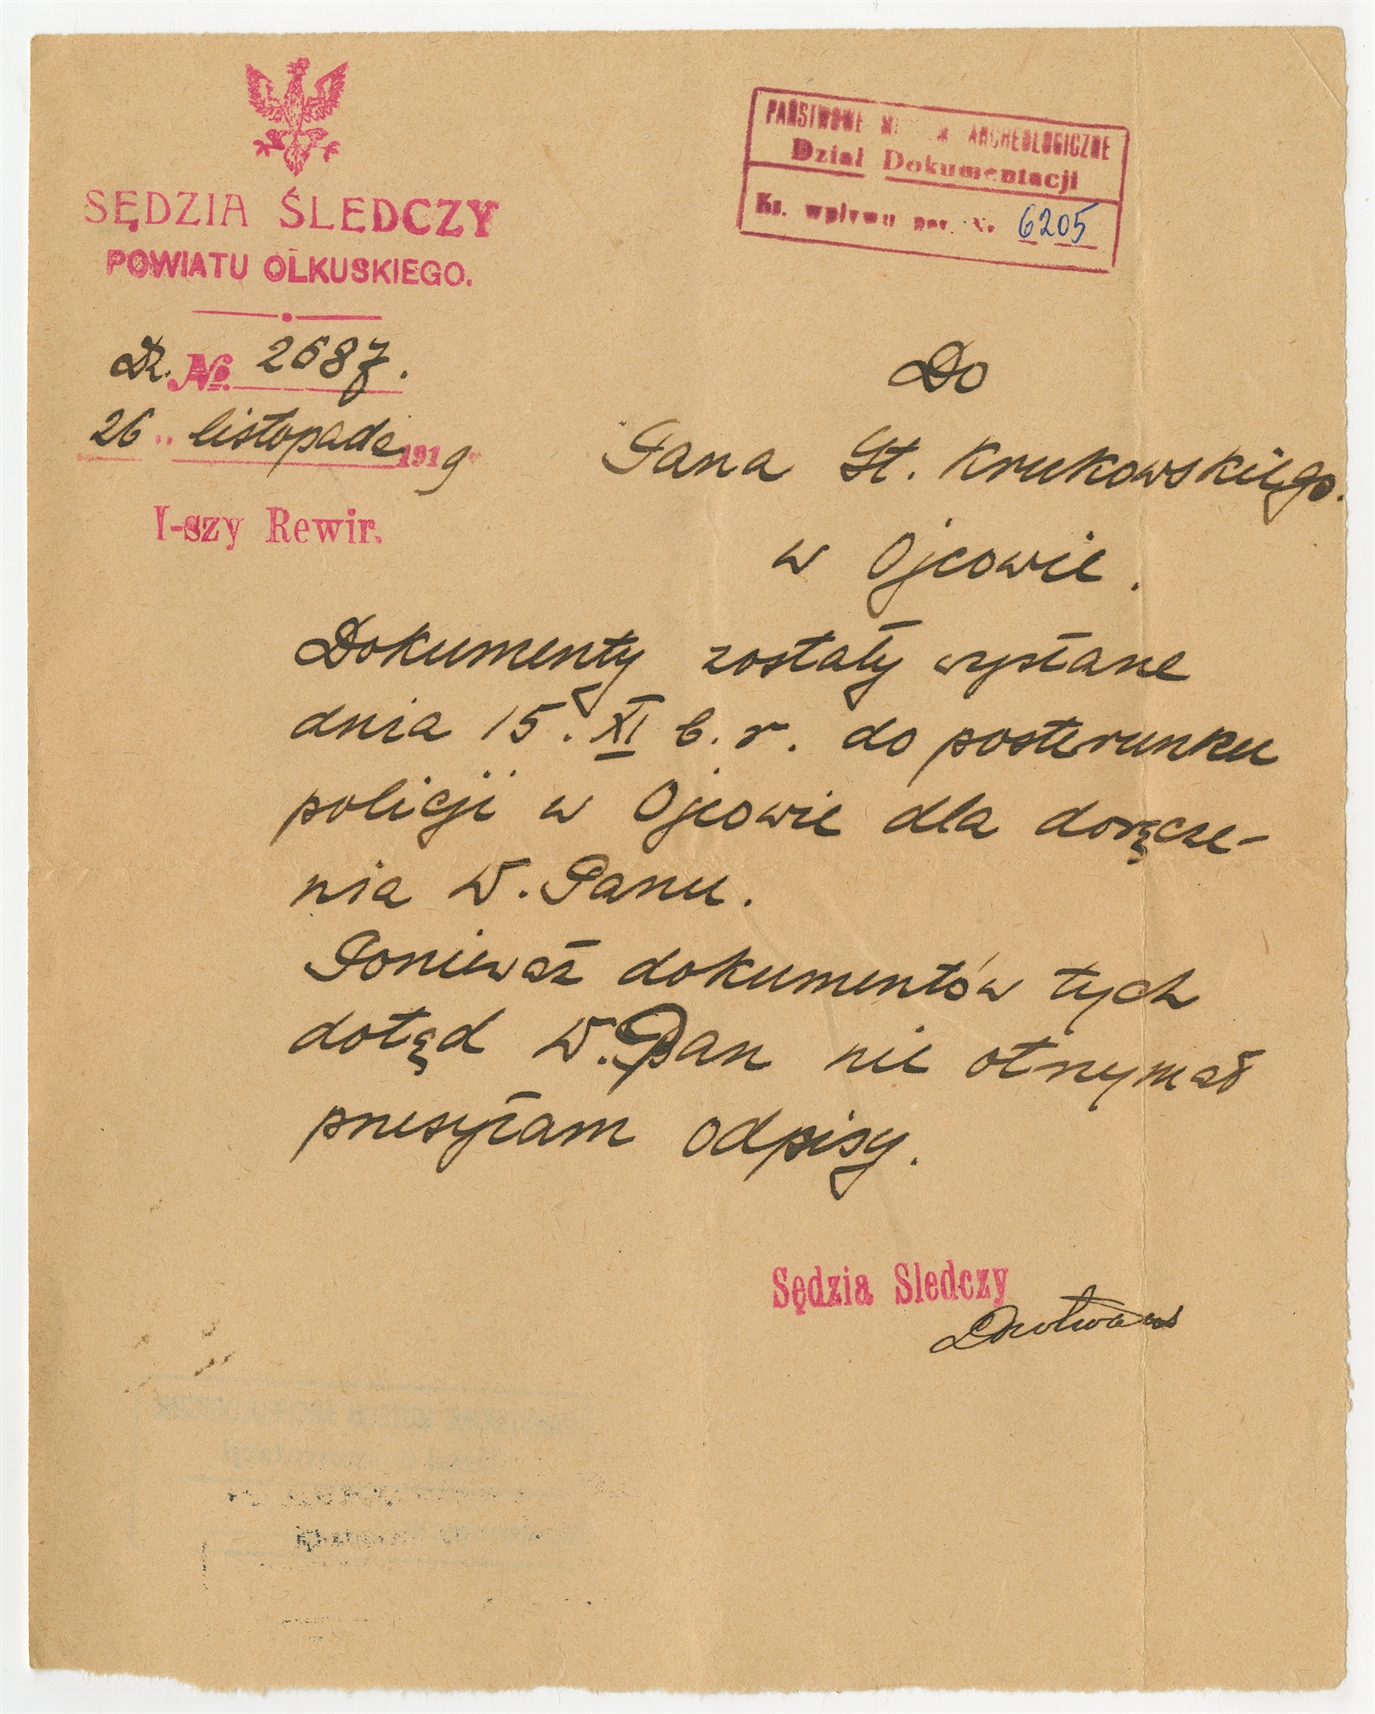 SĘDZIA ŚLEDCZY
POWIATU OLKUSKIEGO.
Dz. № 2687.
26 listopada 1919
I-szy Rewir.
PAŃSTWOWE ARCHEOLOGICZNE
Dział Dokumentacji
Ks. wpływu poz. 6205
Do
Pana St. Krukowskiego.
w Ojcowie.
Dokumenty zostały wysłane
dnia 15. XI b. r. do posterunku
policji w Ojcowie dla doręcze-
nia W. Panu.
Ponieważ dokumentów tych
dotąd W. Pan nie otrzymał
przesyłam odpisy.
Sędzia Sledczy